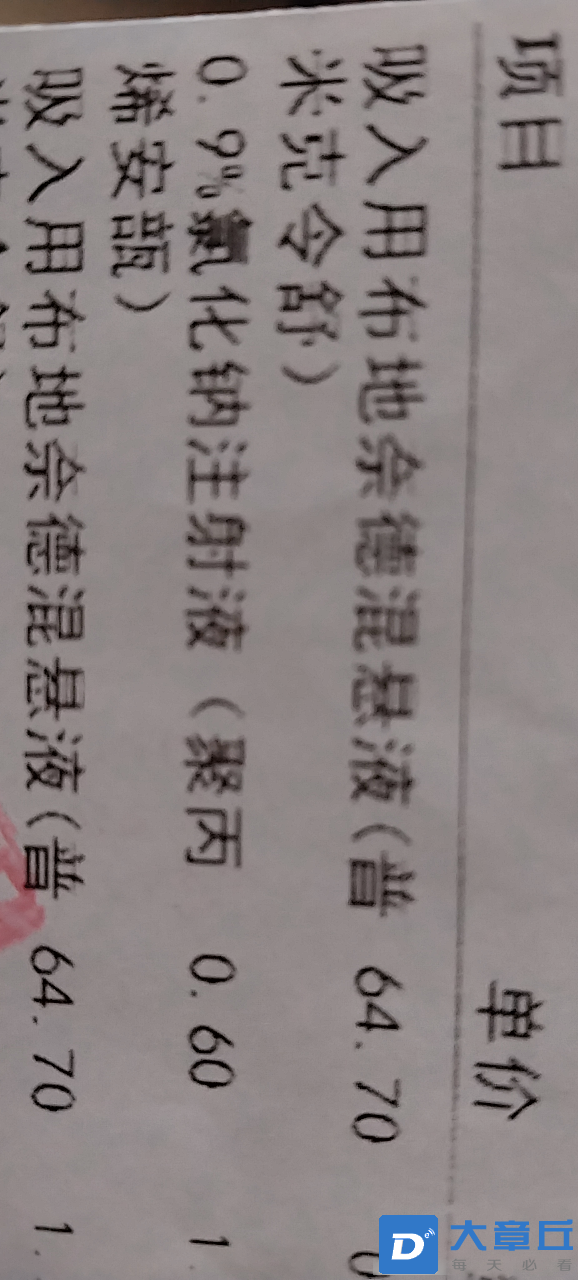 项目 单价
吸入用布地奈德混悬液(普 64.70
米克令舒)
0.9%氯化钠注射液(聚丙 0.60 1
烯安瓿)
吸入用布地奈德混悬液(普 64.70 1.
大章丘
每天必看